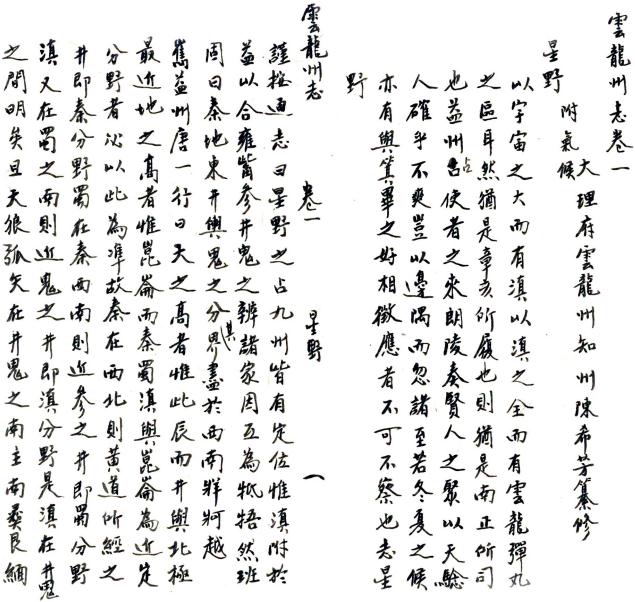 雲龍州志卷一
大理府雲龍州知州陳希芳纂修
星野
附氣候
以宇宙之大而有滇以滇之全而有雲龍彈丸
之區耳然猶是章亥所履也則猶是南正所司
也益州占使者之來朗陵奏賢人之聚以天騐
人確乎不爽豈以邊隅而忽諸至若冬夏之候
亦有與箕畢之好相徵應者不可不察也志星
野
雲龍州志
卷一
星野
一
謹按通志曰星野之占九州皆有定位惟滇附於
益以合雍觜參井鬼之辨諸家因互為牴牾然班
固曰秦地東井與鬼之分其界盡於西南牂牁越
雟益州唐一行曰天之高者惟此辰而井與北極
最近地之高者惟崑崙而秦蜀滇與崑崙為近定
分野者必以此為準故秦在西北則黃道所經之
井即秦分野蜀在秦西南則近參之井即蜀分野
滇又在蜀之南則近鬼之井即滇分野是滇在井鬼
之間明矣且天狼弧矢在井鬼之南主南彝艮緬